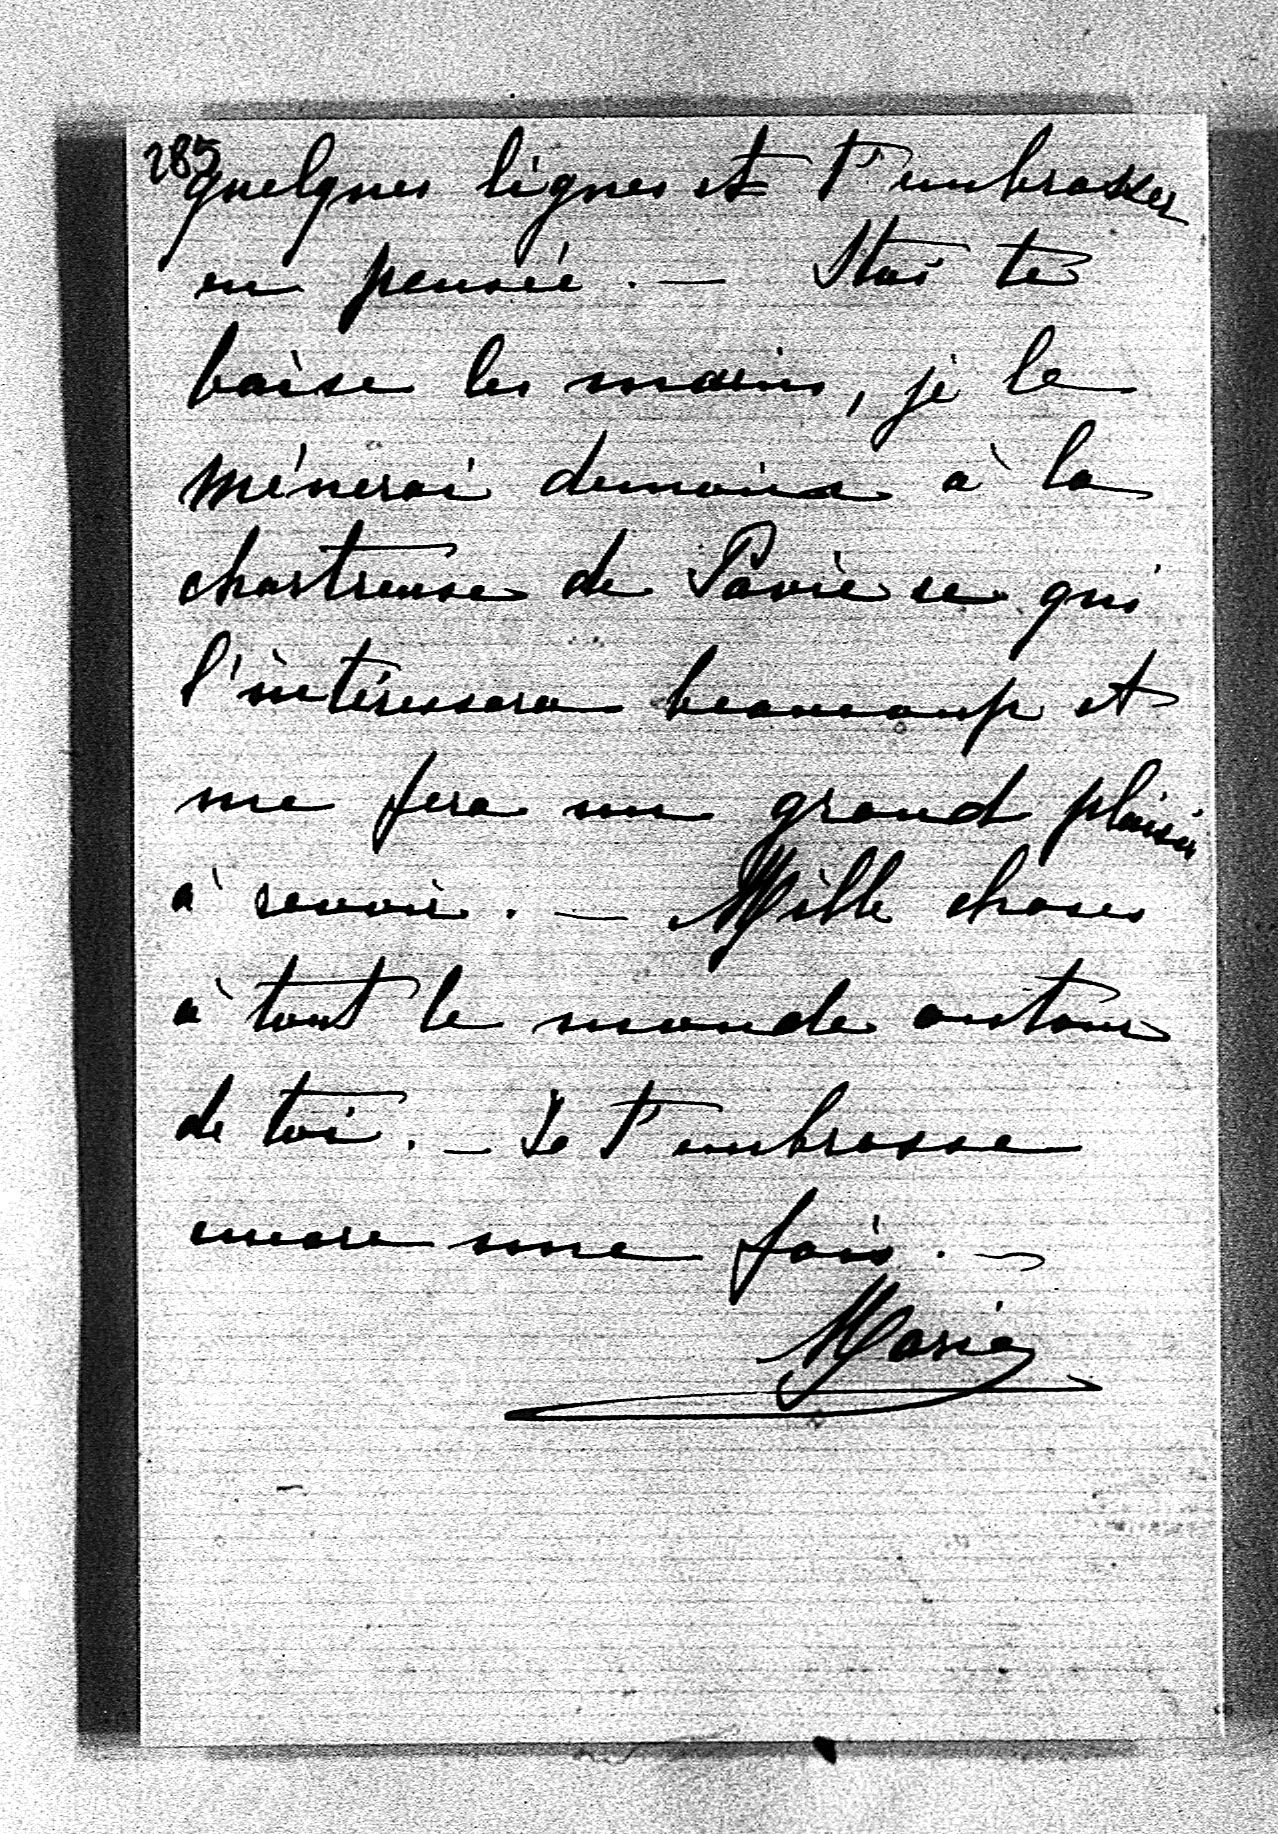 285
quelques lignes et t'embrasser
en pensée. — Stas te
baise les mains, je le
ménerai demain à la
chartreuse de Pavie ce qui
l'intéressera beaucoup et
me fera un grand plaisir
à revoir. — Mille choses
à tout le monde autour
de toi. — Je t'embrasse
encore une fois. —
Marie